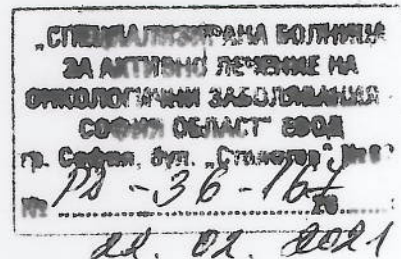 „СПЕЦИАЛИЗИРАНА БОЛНИЦА
ЗА АКТИВНО ЛЕЧЕНИЕ НА
ОНКОЛОГИЧНИ ЗАБОЛЯВАНИЯ -
СОФИЯ ОБЛАСТ" ЕООД
гр. София, бул. „Столетов" №
№ РД-36-167
22. 02. 2021